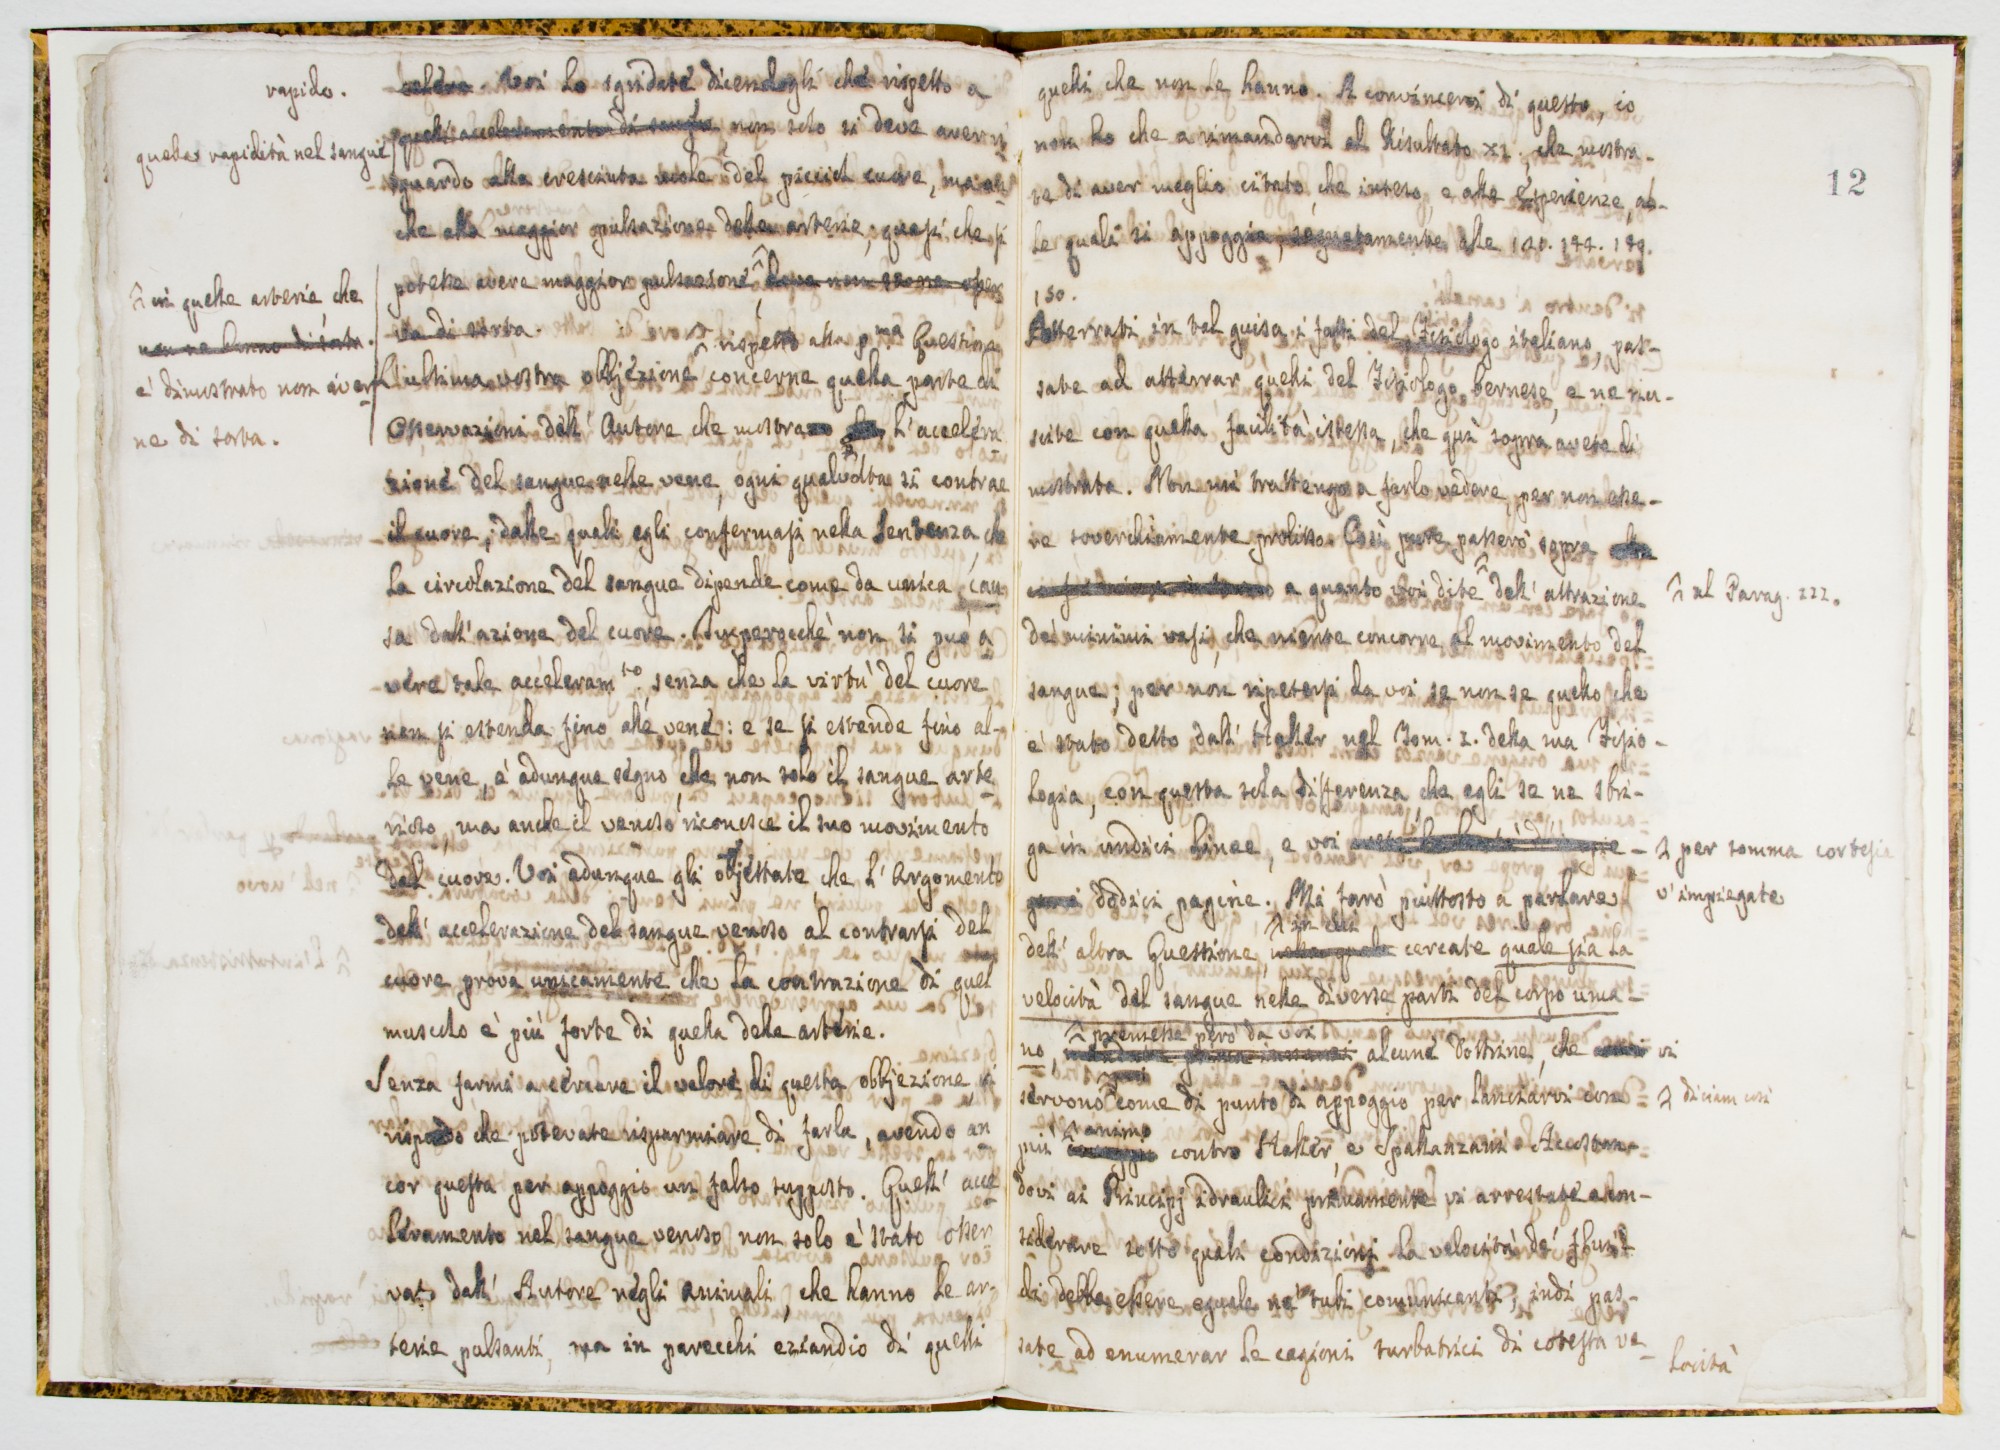 rapido.
quella rapidità nel sangue
^ in quelle arterie, che
non ne hanno di sorta.
è dimostrato non aver-
ne di sorta.
celere. Voi lo sgridate dicendogli che rispetto a
quell'acceleramento di sangue non solo si deve aver ri-
sguardo alla cresciuta mole del picciol cuore, ma an-
che alla maggior pulsazione delle arterie, quasi che si
potesse avere maggior pulsazione ^ dove non
va di sorta.
^ rispetto alla p.ma Questione
L'ultima vostra obbjezione concerne quella parte di
Osservazioni dell'Autore che mostra l'accelera
zione del sangue nelle vene, ogni qualvolta si contrae
il cuore, dalle quali egli confermasi nella Sentenza, che
la circolazione del sangue dipende come da unica cau
sa dall'azione del cuore. Imperocchè non si può a
vere tale acceleram.to senza che la virtù del cuore
non si estenda fino alle vene: e se si estende fino al-
le vene, è adunque segno, che non solo il sangue arte
rioso, ma anche il venoso riconosce il suo movimento
dal cuore. Voi adunque gli objettate che l'Argomento
dell'accelerazione del sangue venoso al contrarsi del
cuore prova unicamente che la contrazione di quel
muscolo è più forte di quella delle arterie.
Senza farmi a cercare il valore di questa obbjezione, vi
rispondo che potevate risparmiare di farla, avendo an
cor questa per appoggio un falso supposto. Quell'acce
leramento nel sangue venoso non solo è stato osser
vato dall'Autore negli animali, che hanno le ar-
terie pulsanti, ma in parecchi eziandio di quelli
12
quelli che non le hanno. A convincervi di questo, io
non ho che a rimandarvi al Risultato XI, che mostra-
te di aver meglio citato, che inteso, e alle Esperienze, al-
le quali si appoggia, segnatamente alle
150.
Atterrati in tal guisa i fatti del Fisiologo italiano, pas-
sate ad atterrar quelli del Fisiologo bernese, e ne riu-
scite con quella facilità istessa, che quì sopra avete di
mostrata. Non mi trattengo a farlo vedere, per non esse-
re soverchiamente prolisso. Così pure passerò sopra
a quanto voi dite ^ dell'attrazione
^ al Parag. III.
de' minimi vasi, che niente concorre al movimento del
sangue; per non ripetersi da voi se non se quello che
è stato detto dall'Haller nel Tom. I. della sua Fisio-
logia, con questa sola differenza, che egli se ne sbri-
ga in undici linee, e voi
^ per somma cortesia
v'impiegate
dodici pagine. Mi farò piuttosto a parlare
^ in cui
dell'altra Questione, nella quale cercate quale sia la
velocità del sangue nelle diverse parti del corpo uma-
^ premesse però da voi
no, alcune Dottrine, che vi
servono ^ come di punto di appoggio per lanciarvi con
^ diciam così
^ animo
più coraggio contro Haller, e Spallanzani. Accostan-
dovi ai Principj idraulici primamente vi arrestate a con-
siderare sotto quali condizioni la velocità de' flui-
di debba essere eguale ne' tubi comunicanti, indi pas-
sate ad enumerar le cagioni turbatrici di cotesta ve-
locità